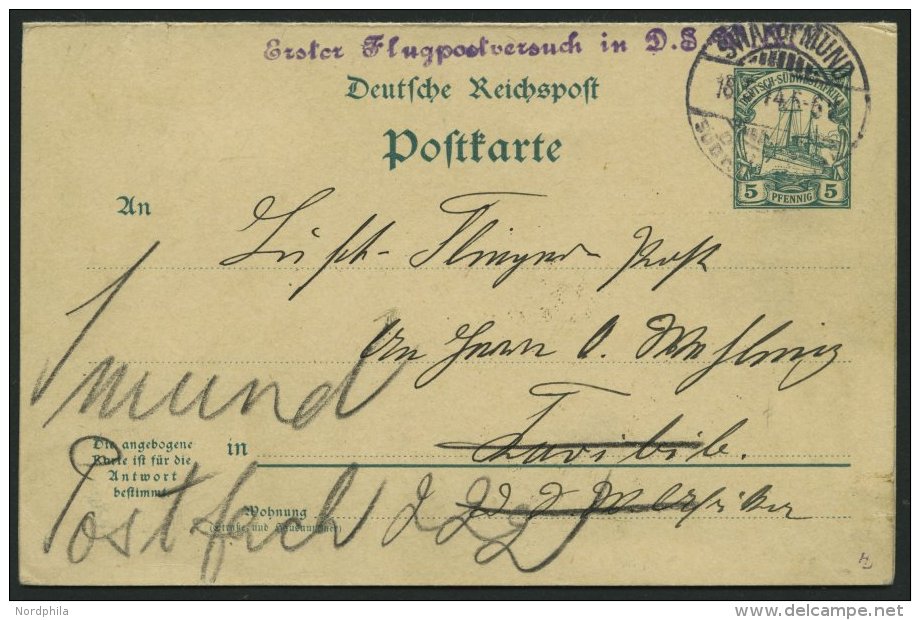 Erster Flugpostversuch in D.S.
SWAKOPMUND
18. 14.5-6
DEUTSCH-SÜDWESTAFRIKA
5 PFENNIG 5
Deutsche Reichspost
Postkarte
An
Luft-Flieger-Post
An Herrn O. Wehling
mund
in
Karibib.
Die angebogene
Karte ist für die
Antwort
bestimmt.
Wohnung
(Straße und Hausnummer)
Postfach
Nordphila
delcampe.net